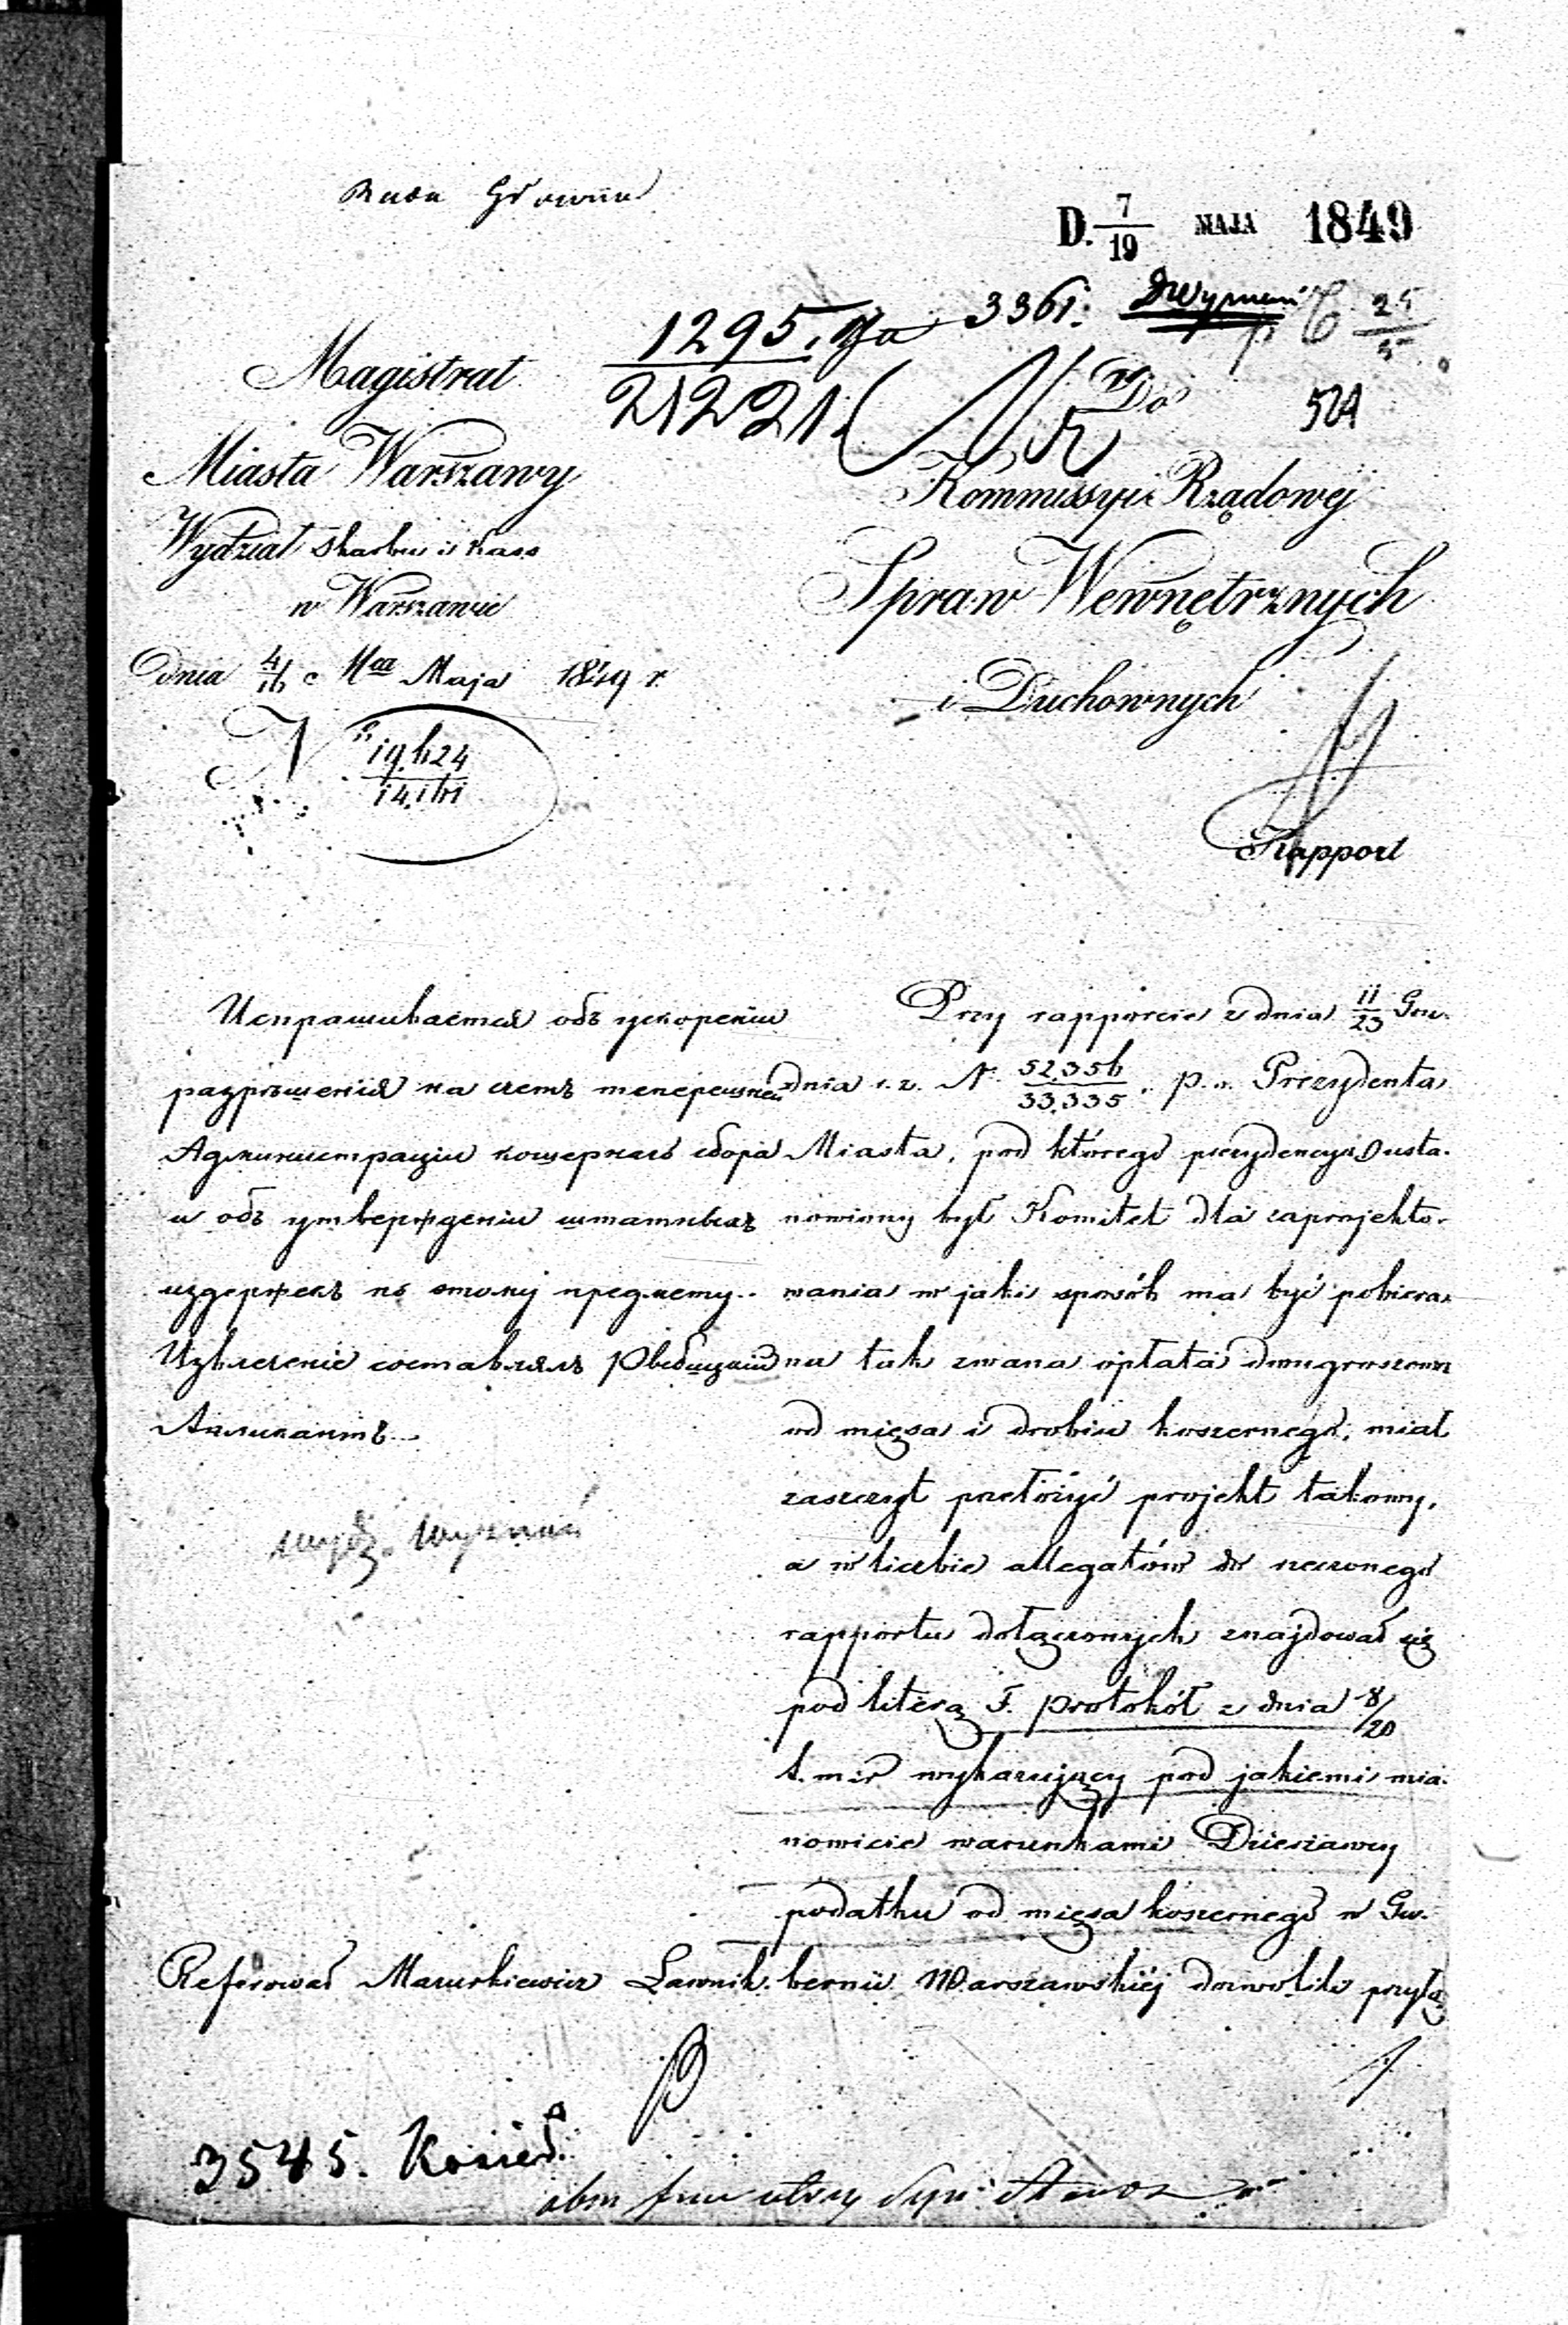 D. 7/19 MAJA 1849
1295. 3361.
21221.
524
Magistrat
Miasta Warszawy
Wydział Skarbu i Kass
w Warszawie
dnia 4/16 Maja 1849 r.
N
Do
Kommissyi Rządowej
Spraw Wewnętrznych
i Duchownych
Rapport
Испрашивается объ ускореніи
разрѣшенія на счетъ теперешней
Администраціи кошернаго сбора
и объ утвержденіи штатныхъ
издержекъ по этому предмету.
Извлеченіе составлялъ
Апликантъ.
Przy rapporcie z dnia 11/23 Gru-
dnia r. z. N. 52,356/33,335. p. o. Prezydenta
Miasta, pod którego prezydencyą usta-
nowiony był Komitet dla zaprojekto-
wania w jaki sposób ma być pobiera-
na tak zwana opłata dwugroszowa
od mięsa i drobiu koszernego, miał
zaszczyt przełożyć projekt takowy,
a w liczbie allegatów do rzeczonego
rapportu dołączonych znajdował się
pod literą F. protokół z dnia 8/20
t. m. i r. wykazujący pod jakiemi mia-
nowicie warunkami Dzierżawcy
podatku od mięsa koszernego w Gu-
bernii Warszawskiéj dozwolili przyłą
Referował Mazurkiewicz Ławnik.
3545.